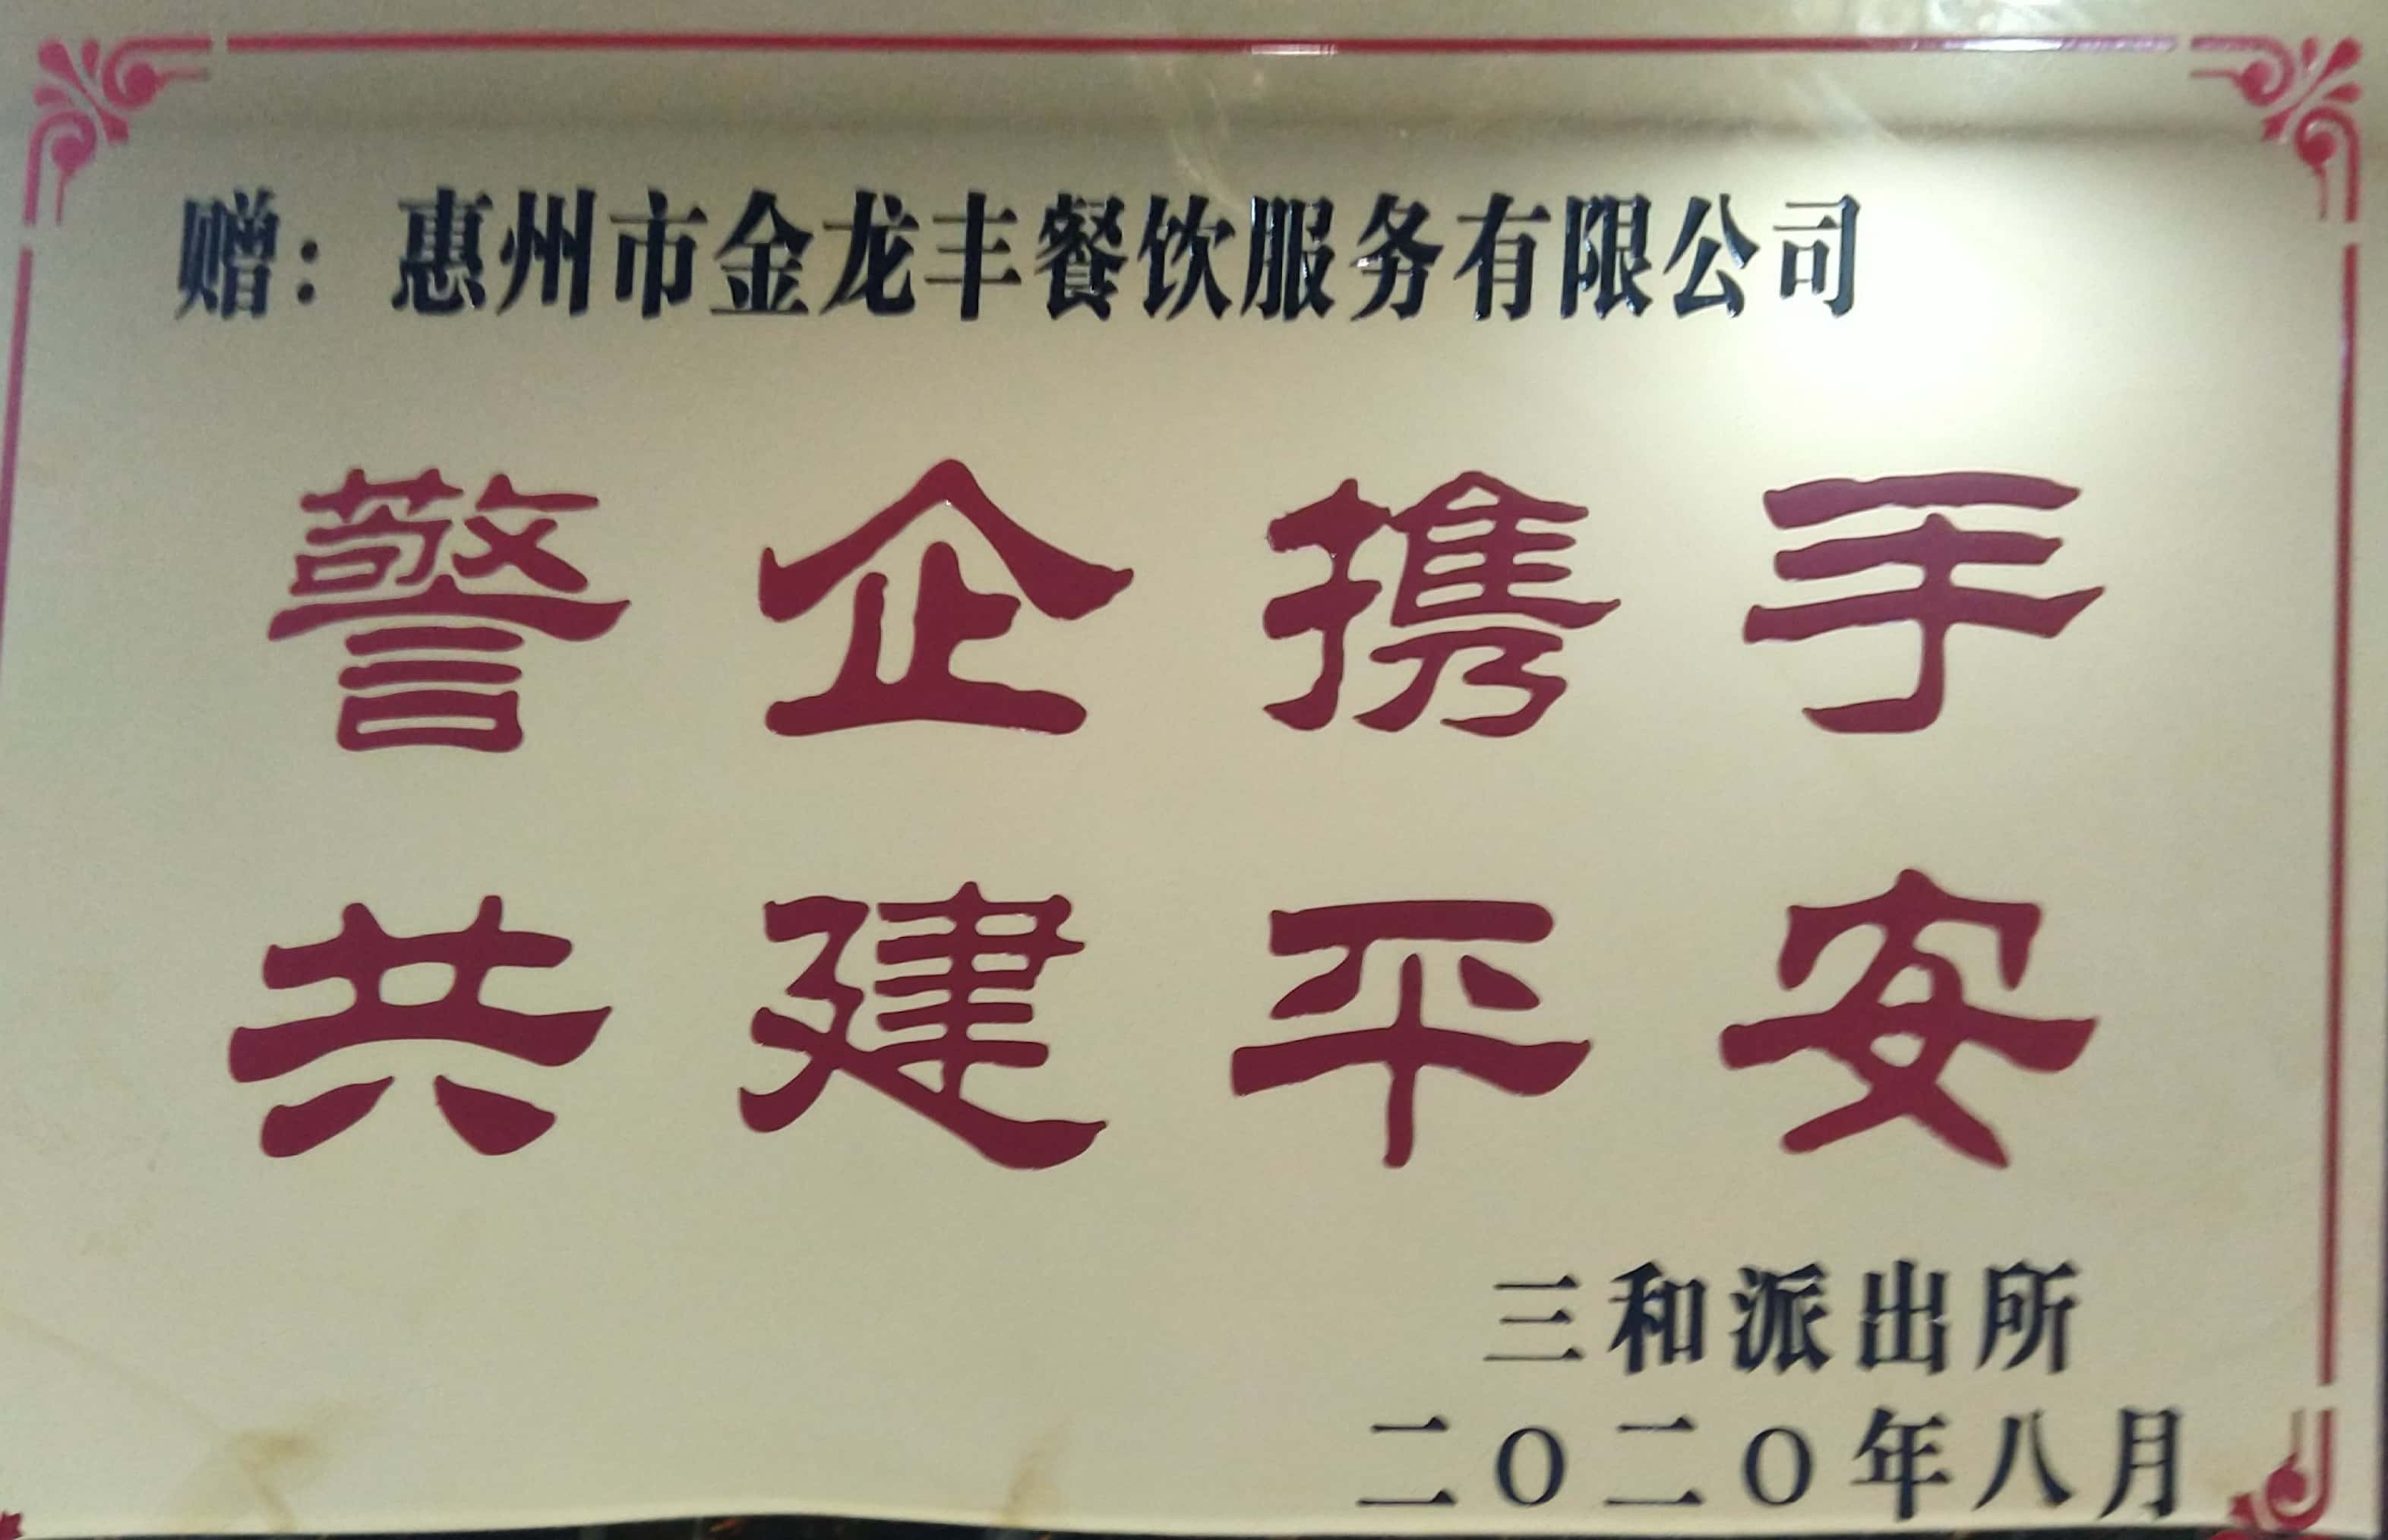 赠：惠州市金龙丰餐饮服务有限公司
警企携手
共建平安
三和派出所
二〇二〇年八月